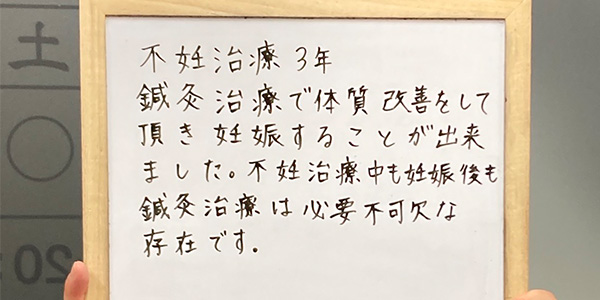 不妊治療 3年
鍼灸治療で体質改善をして
頂き妊娠することが出来
ました。不妊治療中も妊娠後も
鍼灸治療は必要不可欠な
存在です。
土
〇
20: